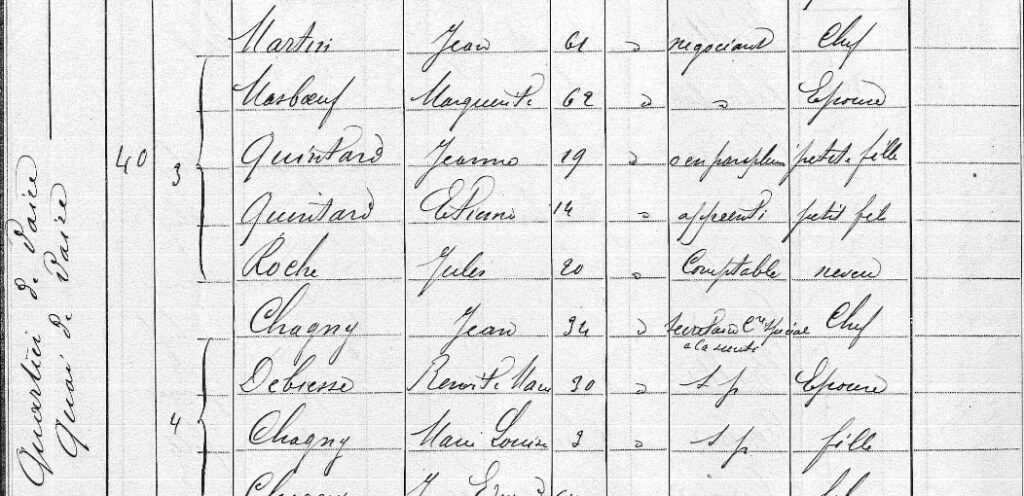 Martin Jean 61 " négociant Chef
Masboeuf Marguerite 62 " " Epouse
40 3 Quintard Jeanne 19 " petite fille
Quintard Etienne 14 " apprenti petit fils
Roche Jules 20 " Comptable neveu
Chagny Jean 34 " Secrétaire Cre Spécial Chef
à la sureté
Debiesse Benoite Marie 30 " s p Epouse
4 Chagny Marie Louise 3 " s p fille
Chagny
Quartier de Vaise
Quai de Vaise